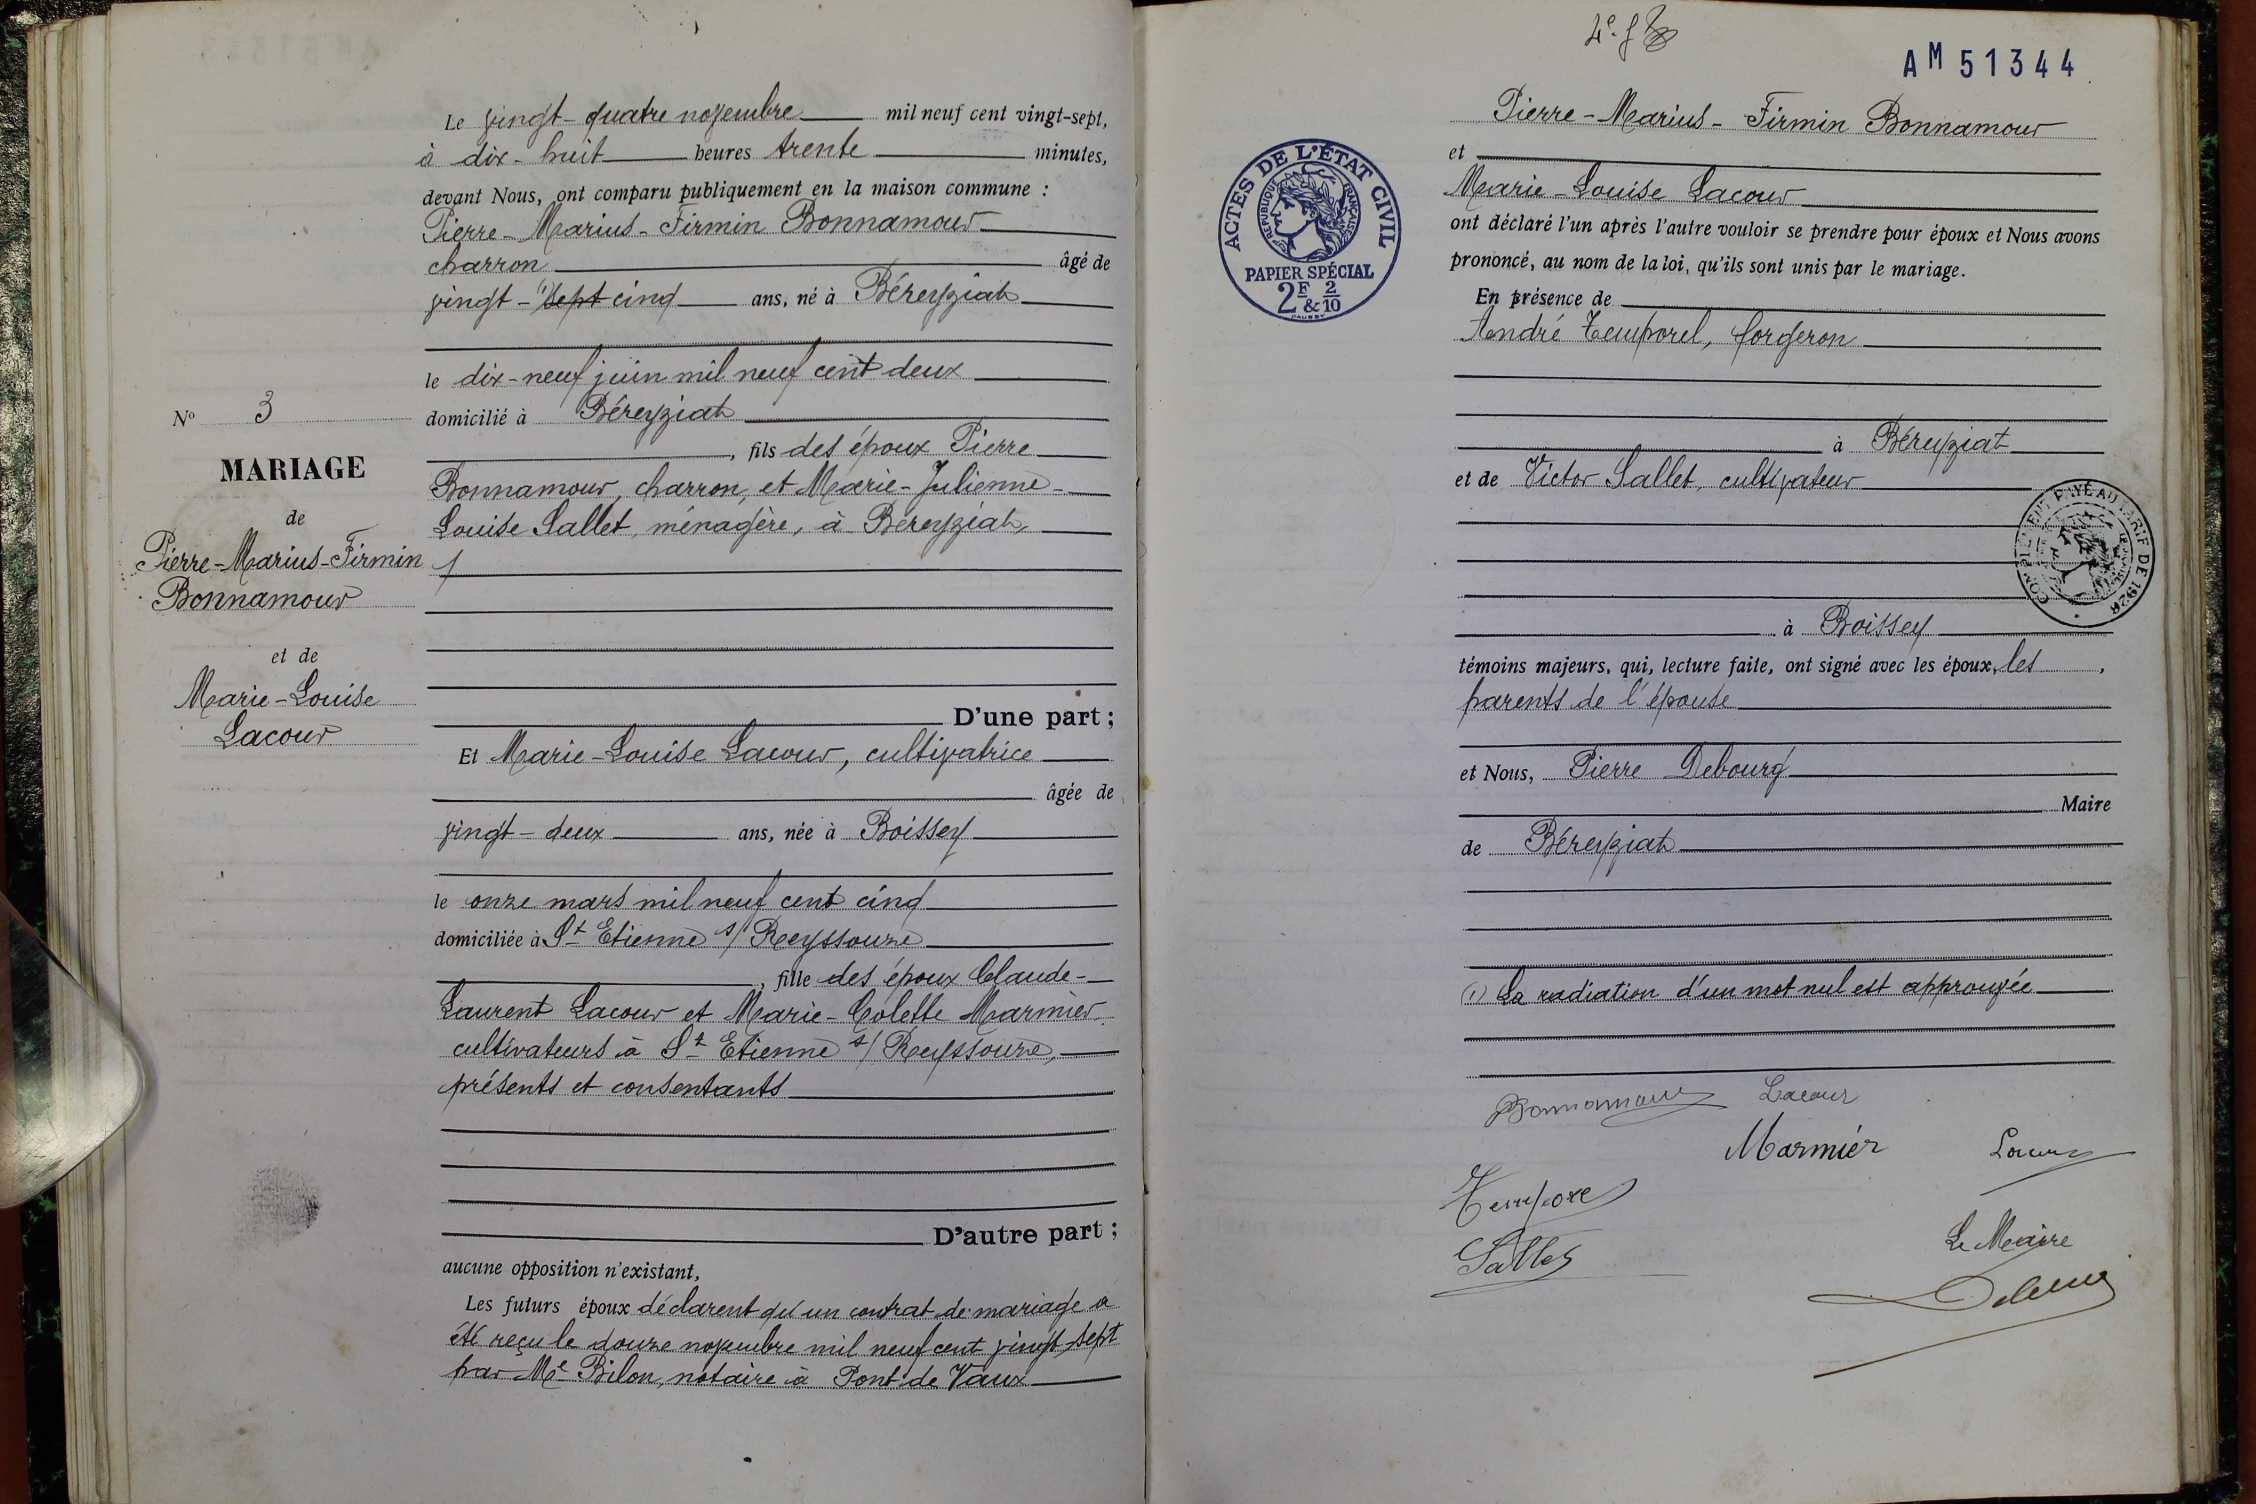 Le vingt-quatre novembre mil neuf cent vingt-sept,
à dix-huit heures trente minutes,
devant Nous, ont comparu publiquement en la maison commune :
Pierre-Marius-Firmin Bonnamour
charron âgé de
vingt-sept cinq ans, né à Béreyziat
le dix-neuf juin mil neuf cent deux
domicilié à Béreyziat
, fils des époux Pierre
Bonnamour, charron, et Marie-Julienne-
Louise Sallet, ménagère, à Béreyziat,
D'une part ;
Et Marie-Louise Lacour, cultivatrice
âgée de
vingt-deux ans, née à Boissey
le onze mars mil neuf cent cinq
domiciliée à St Etienne s/ Reyssouze
, fille des époux Claude-
Laurent Lacour et Marie-Colette Marmier
cultivateurs à St Etienne s/ Reyssouze,
présents et consentants
D'autre part ;
aucune opposition n'existant,
Les futurs époux déclarent qu'un contrat de mariage a
été reçu le douze novembre mil neuf cent vingt-sept
par Me Bilon, notaire à Pont de Vaux
No 3
MARIAGE
de
Pierre-Marius-Firmin
Bonnamour
et de
Marie-Louise
Lacour
4e f
AM 51344
Pierre-Marius-Firmin Bonnamour
et
Marie-Louise Lacour
ont déclaré l'un après l'autre vouloir se prendre pour époux et Nous avons
prononcé, au nom de la loi, qu'ils sont unis par le mariage.
En présence de
André Temporel, forgeron
à Béreyziat
et de Victor Sallet, cultivateur
à Boissey
témoins majeurs, qui, lecture faite, ont signé avec les époux, les ,
parents de l'épouse
et Nous, Pierre Debourg
Maire
de Béreyziat
(1) La radiation d'un mot nul est approuvée
Bonnamour Lacour
Marmier Lacour
Temporel
Sallet
Le Maire
ACTES DE L'ÉTAT CIVIL
RÉPUBLIQUE FRANÇAISE
PAPIER SPÉCIAL
2F & 2/10
COMPLÉMENT PAYÉ AU TARIF DE 1926